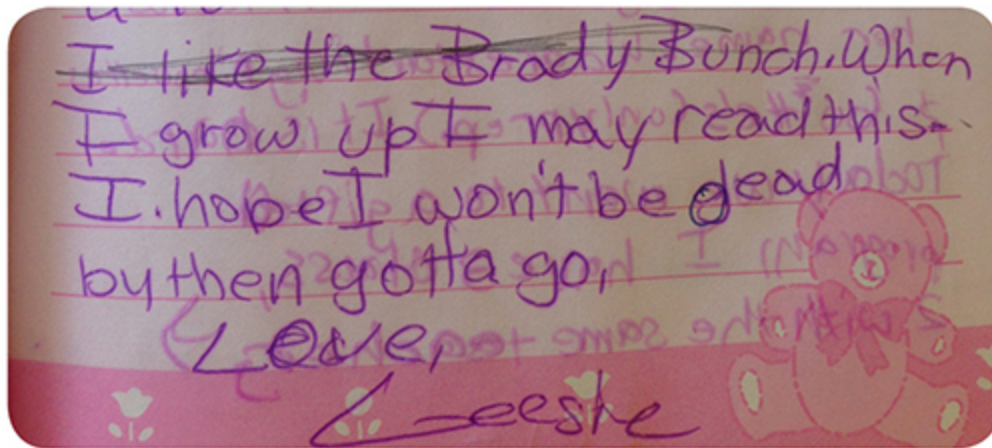 I like the Brady Bunch. When
I grow up I may read this.
I. hope I won't be dead
by then gotta go,
Love,
Leeshe